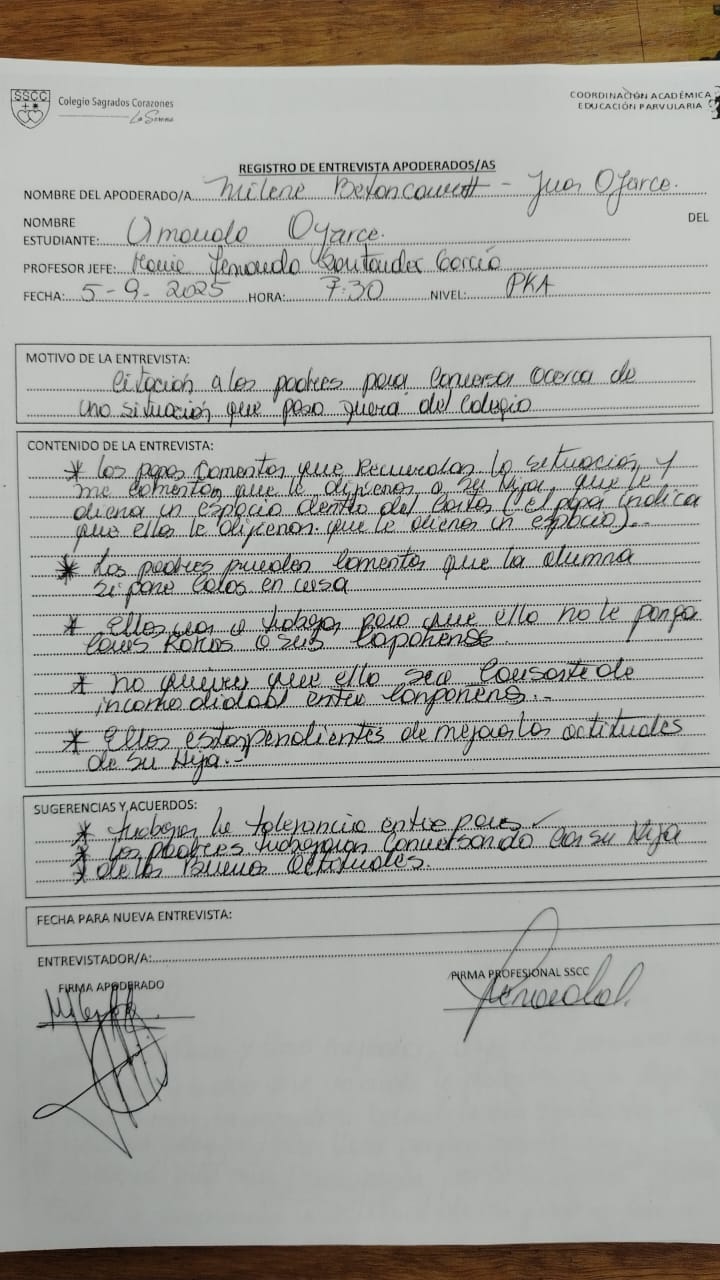 SSCC
Colegio Sagrados Corazones
La Serena
COORDINACIÓN ACADÉMICA
EDUCACIÓN PARVULARIA
REGISTRO DE ENTREVISTA APODERADOS/AS
NOMBRE DEL APODERADO/A Milene Betancourtt - Juan Oyarce.
NOMBRE DEL
ESTUDIANTE: Amanda Oyarce.
PROFESOR JEFE: María Fernanda Santander García
FECHA: 5-9-2025 HORA: 7:30 NIVEL: PKA
MOTIVO DE LA ENTREVISTA:
Citación a los padres para conversar acerca de
una situación que paso fuera del colegio
CONTENIDO DE LA ENTREVISTA:
* Los papas comentan que recuerdan la situación, y
me comentan que le dijeron a su hija, que le
diera un espacio dentro del (el papá indica
que ellos le dijeron que le dieron un espacio)..
* Los padres comentan que la alumna
si pone en casa
* Ellos van a trabajar para que ella no le ponga
a sus
* no quieren que ella sea causante de
incomodidad entre compañeros..
* Ellos estar pendientes de mejorar las actitudes
de su hija.-
SUGERENCIAS Y ACUERDOS:
* trabajar la tolerancia entre pares
* Los padres trabajaran conversando con su hija
* de las buenas actitudes.
FECHA PARA NUEVA ENTREVISTA:
ENTREVISTADOR/A:
FIRMA APODERADO
FIRMA PROFESIONAL SSCC